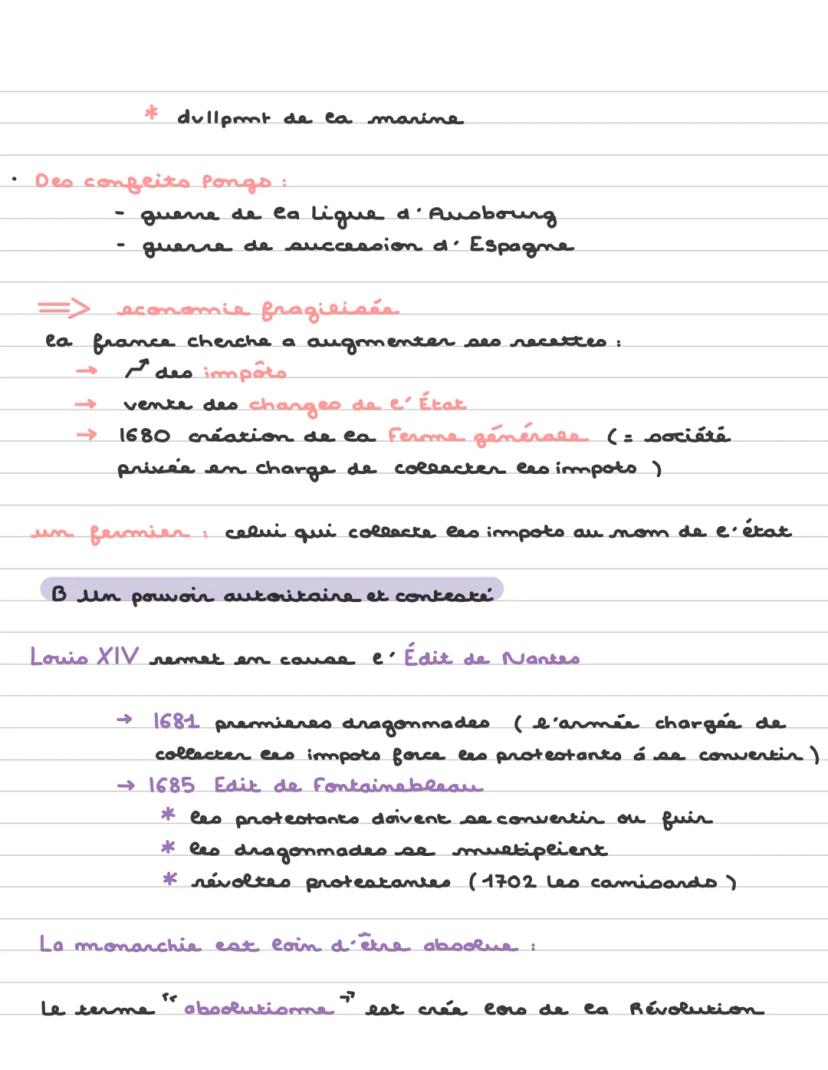 * dvllpmnt de la marine
· Des conflits longs :
- guerre de la Ligue d'Ausbourg
- guerre de succession d'Espagne
=> economie fragilisée
la france cherche a augmenter ses recettes :
→ ↗ des impôts
→ vente des charges de l'État
→ 1680 création de la Ferme générale (= société
privée en charge de collecter les impots )
un fermier : celui qui collecte les impots au nom de l'état
B Un pouvoir autoritaire et contesté
Louis XIV remet en cause l'Édit de Nantes
→ 1681 premieres dragonnades ( l'armée chargée de
collecter les impots force les protestants á se convertir )
→ 1685 Edit de Fontainebleau
* les protestants doivent se convertir ou fuir
* les dragonnades se multiplient
* révoltes protestantes (1702 les camisards )
La monarchie est loin d'être absolue :
Le terme "absolutisme" est crée lors de la Révolution